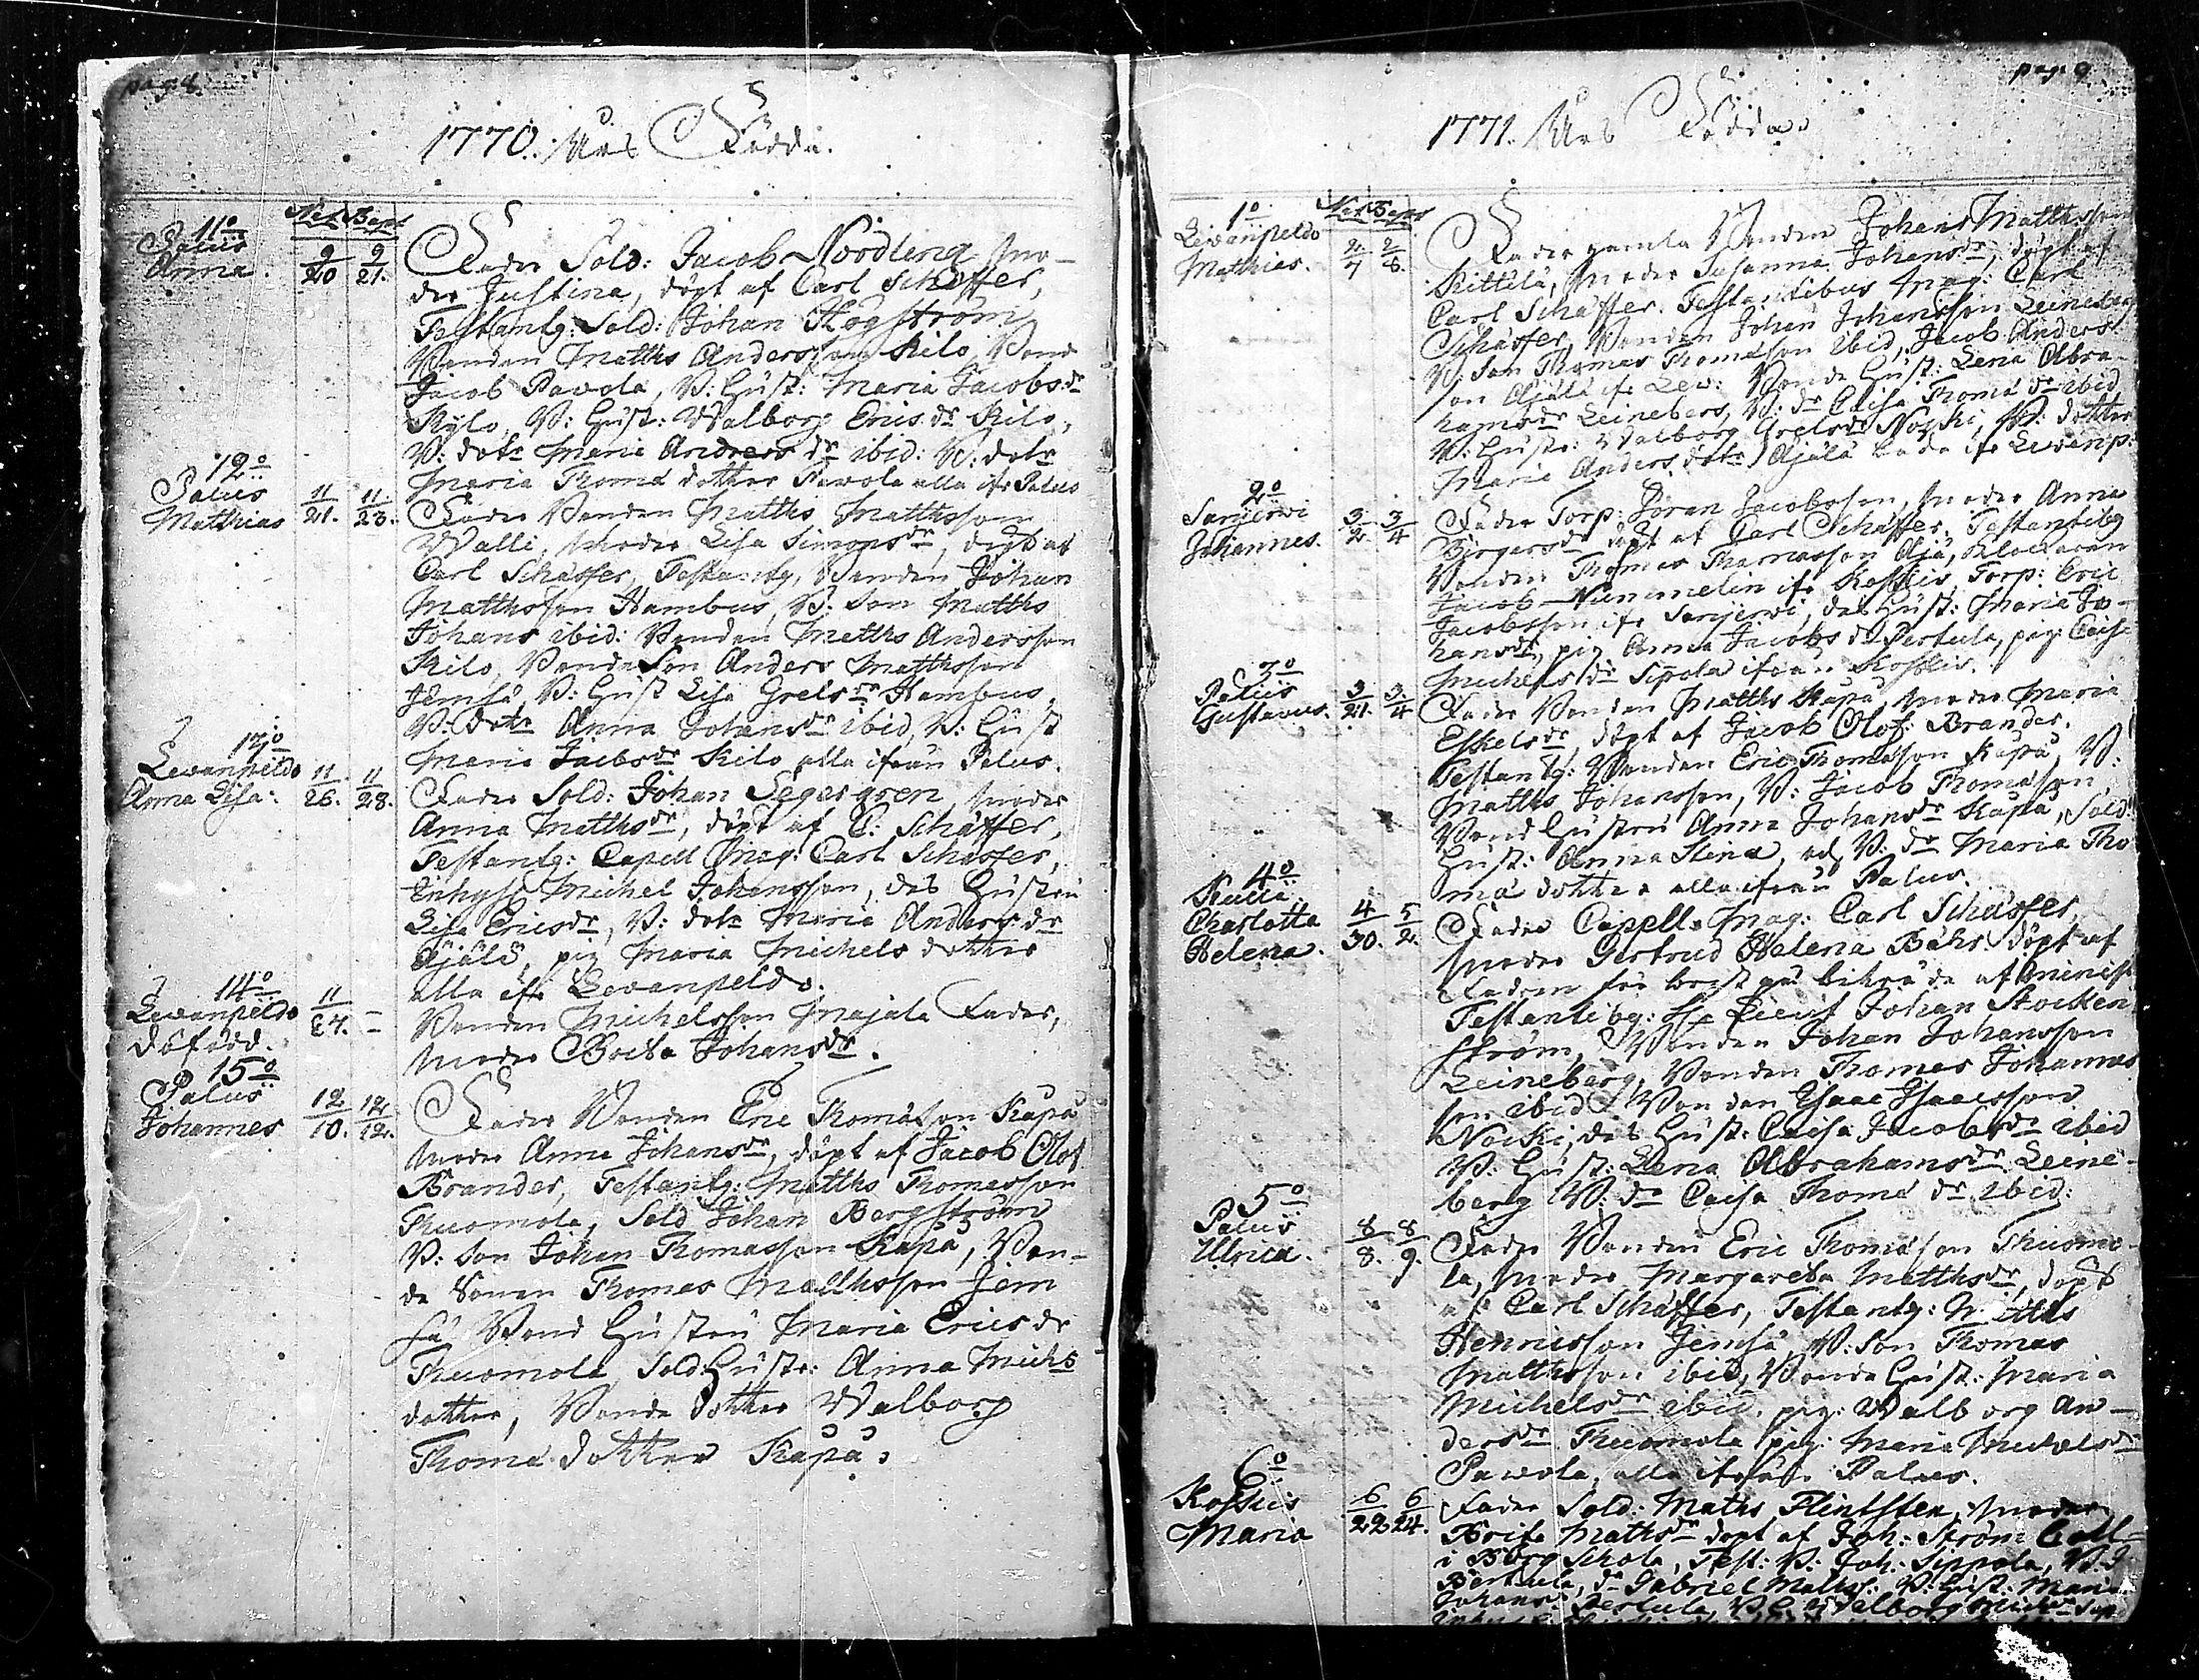 pag. 8.
1770. Års Födde.
Nat Bapt
11o
Palus
Anna.
9/20 9/21.
Fader Sold: Jacob Nordling mo-
der Justina, döpt af Carl Schæffer,
Testantg: Sold: Johan Högström
Bonden Matths Andersson Kilo, Bond
Jacob Pavola, B: Hust: Maria Jacobs dr
Kylo, B: Hust: Walborg Erics dr Kilo,
B: dotr Maria Anders dr ibid: B: dotr
Maria Thoma dotter Pavola alla ifr Palus
12o
Palus
Matthias
11/21. 11/23.
Fader Bonden Matths Mattsson
Walli, Moder Lisa Simons dr, döpt af
Carl Schæffer, Testantg, Bonden Johan
Matthsson Hambus, B: Son Matths
Johans ibid: Bonden Matths Andersson
Kilo, BondeSon Anders Matthsson
Jemsä B: Hust Lisa Grels dr Hambus,
B: Dotr Anna Johans dr ibid, B: Hust
Maria Jacobs dr Kilo alla ifrån Palus.
13o
Levanpeldo
Anna Lisa.
11/26. 11/28.
Fader Sold: Johan Segergren, Moder
Anna Matths dr, döpt af C: Schäffer,
Testantg: Capell Mag: Carl Schæffer,
Inhys: Michel Johansson, des Hustru
Lisa Erics dr, B: dotr Maria Anders dr
Äjälä, pig Maria Michels dotter
alla ifr Levanpeldo.
14o
Levanpeldo
döfödd.
11/24. -
Bonden Michelsson Majala Fader,
Moder Brita Johans dr.
15o
Palus
Johannes
12/10. 12/12.
Fader Bonden Eric Thomason Kapa
Moder Anna Johans dr, döpt af Jacob Olof
Brander, Testantg: Matths Thomasson
Thuomola, Sold Johan Bergström
B: Son Johan Thomasson Kapa, Bon-
de Sonen Thomas Matthsson Jem
sä Bond Hustru Maria Erics dr
Thuomola Sold Hustr: Anna Michs
dotter, Bonde dotter Walborg
Thoma dotter Kapa.
pag. 9
1771. Års Födde.
Nat Bapt
1o
Levanpeldo
Mathias.
2/7 2/8.
Fader gamla Bonden Johan Matthsson
Kittilä, Moder Susanna Johans dr, döpt af
Carl Schäffer. Testantibus Mag: Carl
Schäffer, Bonden Johan Johansson Leineberg
B: Son Thomas Thomasson ibid, Jacob Anders
son Äjälä ifr Lev: Bonde Hust: Lena Abra-
hams dr Leineberg, B: dr Caisa Thoma dr ibid
B: Hustr: Walborg Grels dr Nocki, B: dotter
Maria Anders dotr Äjälä bade ifr Levanp:
2o
Sarjerwi
Johannes.
3/2. 3/4
Fader Torp: Jöran Jacobsson, Moder Anna
Birgers dr döpt af Carl Schäffer, Testantibg
Bonden Thomas Thomasson Äjä, Klockaren
Jacob Nummelin ifr Koskis, Torp: Eric
Jacobsson ifr Sarjerwi, des Hust: Maria Jo-
hans dr, pig Anna Jacobs dr Pertula, pig: Caisa
Michels dr Sipola ifrån Koskis.
3o
Palus
Gustavus.
3/21. 3/4
Fader Bonden Matths Kapa, Moder Maria
Eskels dr, döpt af Jacob Olof: Brander.
Testantg: Bonden Eric Thomason Kapa, B:
Matths Johansson, B: Jacob Thomason
Bond Hustru Anna Johans dr Kapa, Sold:
Hust: Anna Stina, och B: dr Maria Tho
ma dotter alla ifrån Palus.
4o
Charlotta
Helena.
4/30. 5/2.
Fader Capell: Mag: Carl Schäffer,
Moder Gertrud Helena Bähr döpt af
Testantibg: Johan Stocken
ström, Bonden Johan Johansson
Leineberg, Bonden Thomas Johannes
son ibid Bonden Isaac Isacsson
Nocki, des Hust: Caisa Jacobs dr ibid
B: Hust: Lena Abrahams dr Leine-
berg B: dr Caisa Thoma dr ibid:
5o
Palus
Ulrica.
8/8. 8/9.
Fader Bonden Eric Thomason Thuomo-
la, Moder Margareta Matths dr, döpt
af Carl Schäffer, Testantg: Matths
Hennisson Jemsä, B: Son Thomas
Matthsson ibid, Bonde Hust: Maria
Michels dr ibid. pig: Walborg An-
ders dr Thuomola pig: Maria Michels dr
Pavola, alla ifrån Palus.
6o
Koskis
Maria
6/22 6/24.
Fader Sold: Maths Flintsten, Moder
Brita Maths dr döpt af Joh: Ström Coll-
i Borg Schola, Test: B: Joh: Sippola, B: J
Bertula, dr Gabriel Mathss: B: Hust: Maria
Johans dr Bertula, Walborg